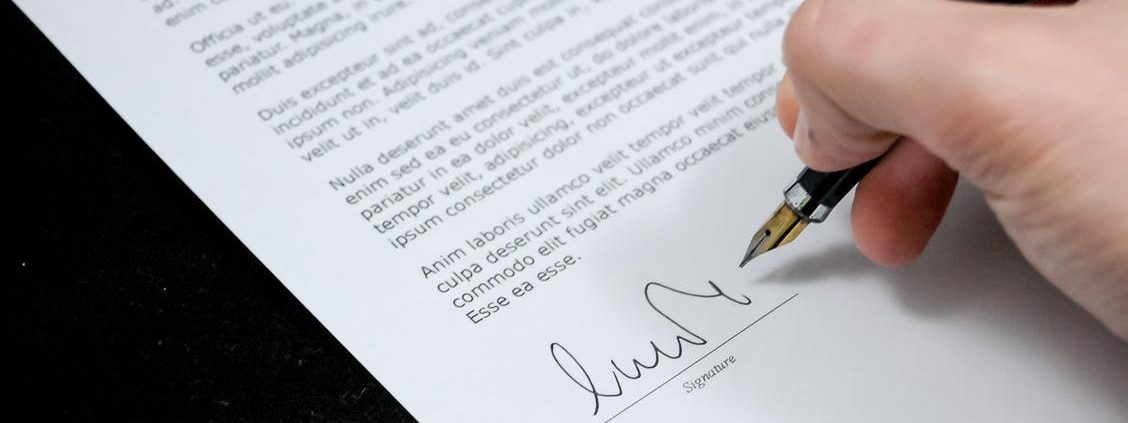 enim c
Officia ut eu.
esse, voluptate
pariatur. Magna, in
mollit adipisicing irure.
Duis excepteur sint ad, cons
incididunt et ad ea occaecat cup
ipsum non. Adipisicing veniam mol
velit ut in, velit duis id. Sint culpa in,
Nulla deserunt amet duis est consequat
enim sed ea eu consectetur ut, do dolore labor
pariatur in ea dolor velit, excepteur mollit enim, in
tempor velit, adipisicing, excepteur ut excepteur
ipsum consectetur dolor non occaecat sunt qui nu
Anim laboris ullamco velit tempor velit tempo
culpa deserunt sint elit. Ullamco minim con
commodo elit fugiat magna occaecat eius
Esse ea esse.
Signature